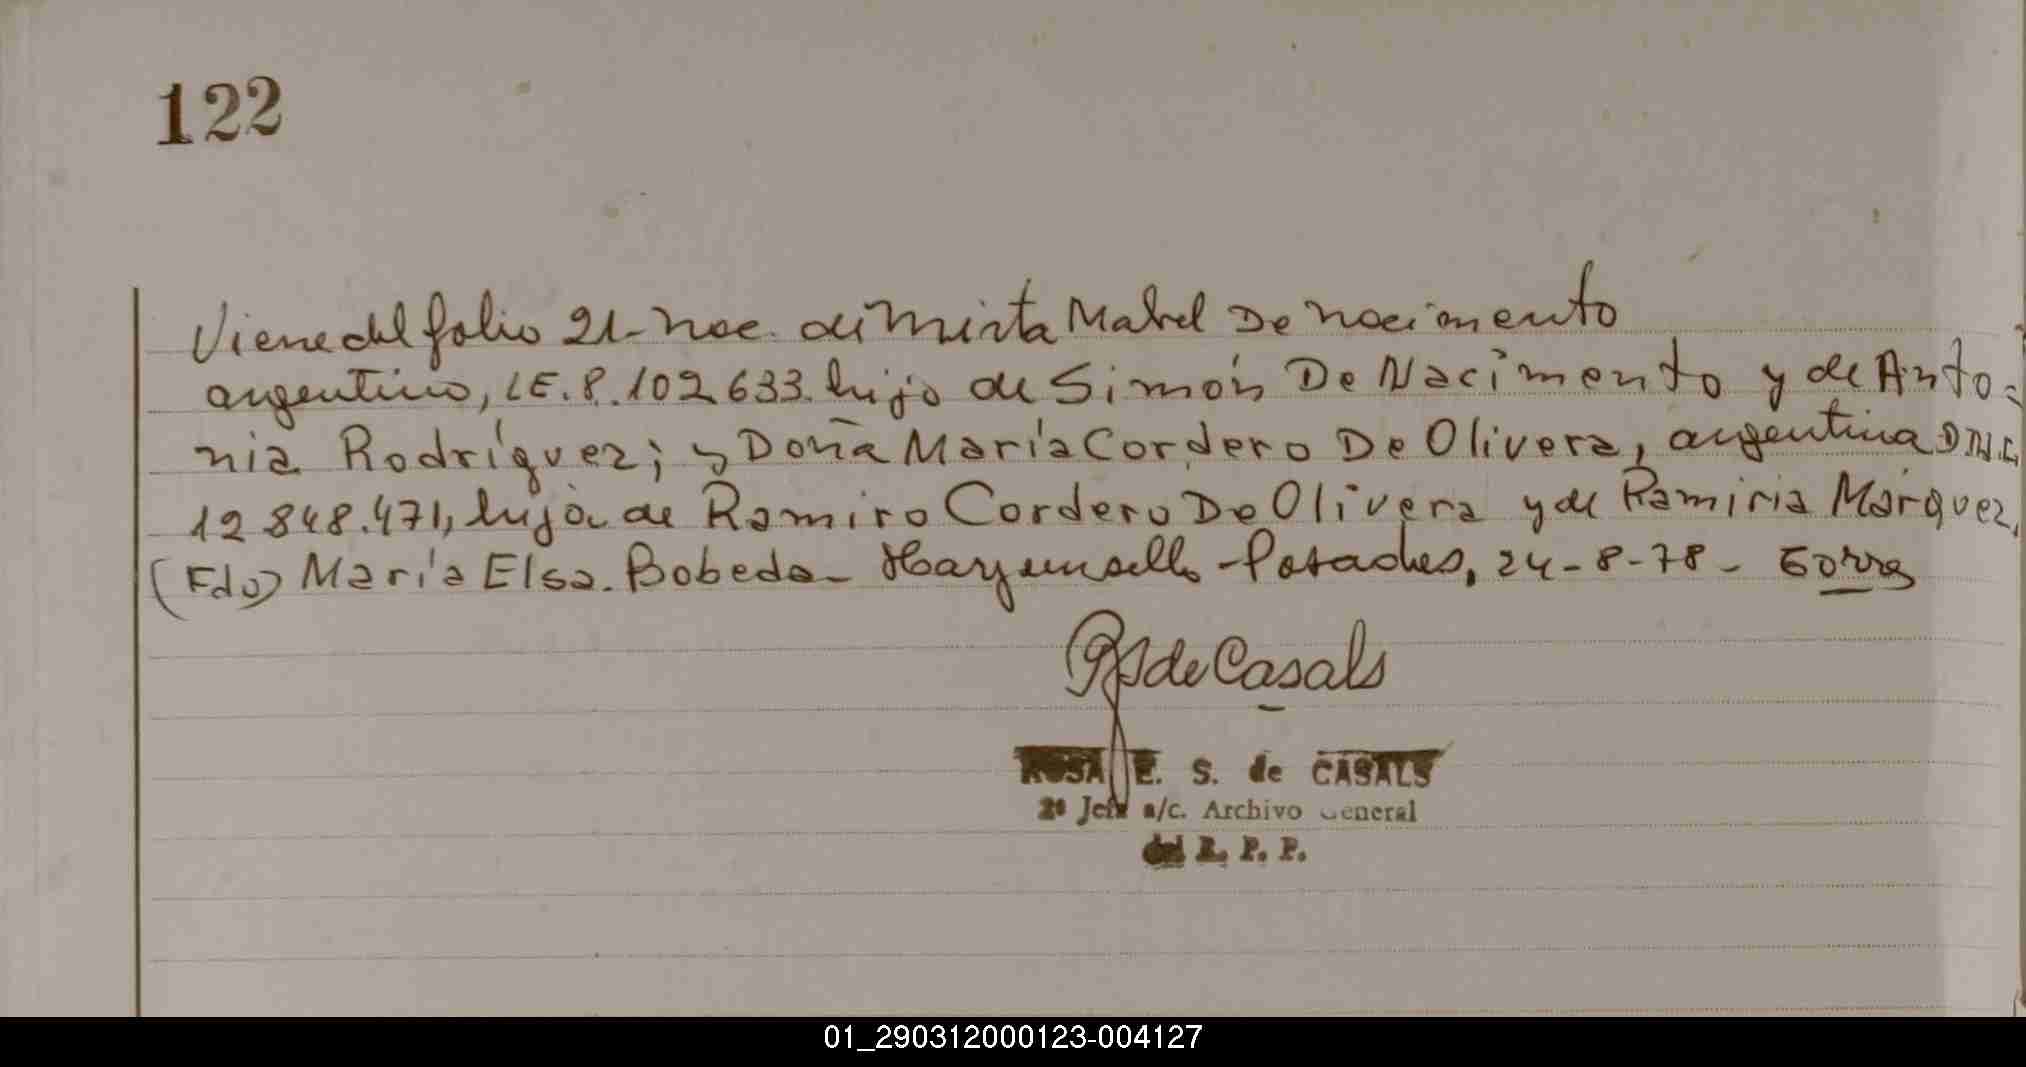 122
Viene del folio 21- nac. de Mirta Mabel De nacimento
argentino, L.E. 8.102.633. hijo de Simón De Nacimento y de Anto=
nia Rodríguez; y Doña María Cordero De Olivera, argentina D.N.I.
12.848.471, hija de Ramiro Cordero De Olivera y de Ramiria Márquez,
(Fdo) María Elsa. Bobeda- Hay un sello - Posadas, 24-8-78-
RS de Casals
ROSA E. S. de CASALS
2º Jefe a/c. Archivo General
del R. P. P.
01_290312000123-004127